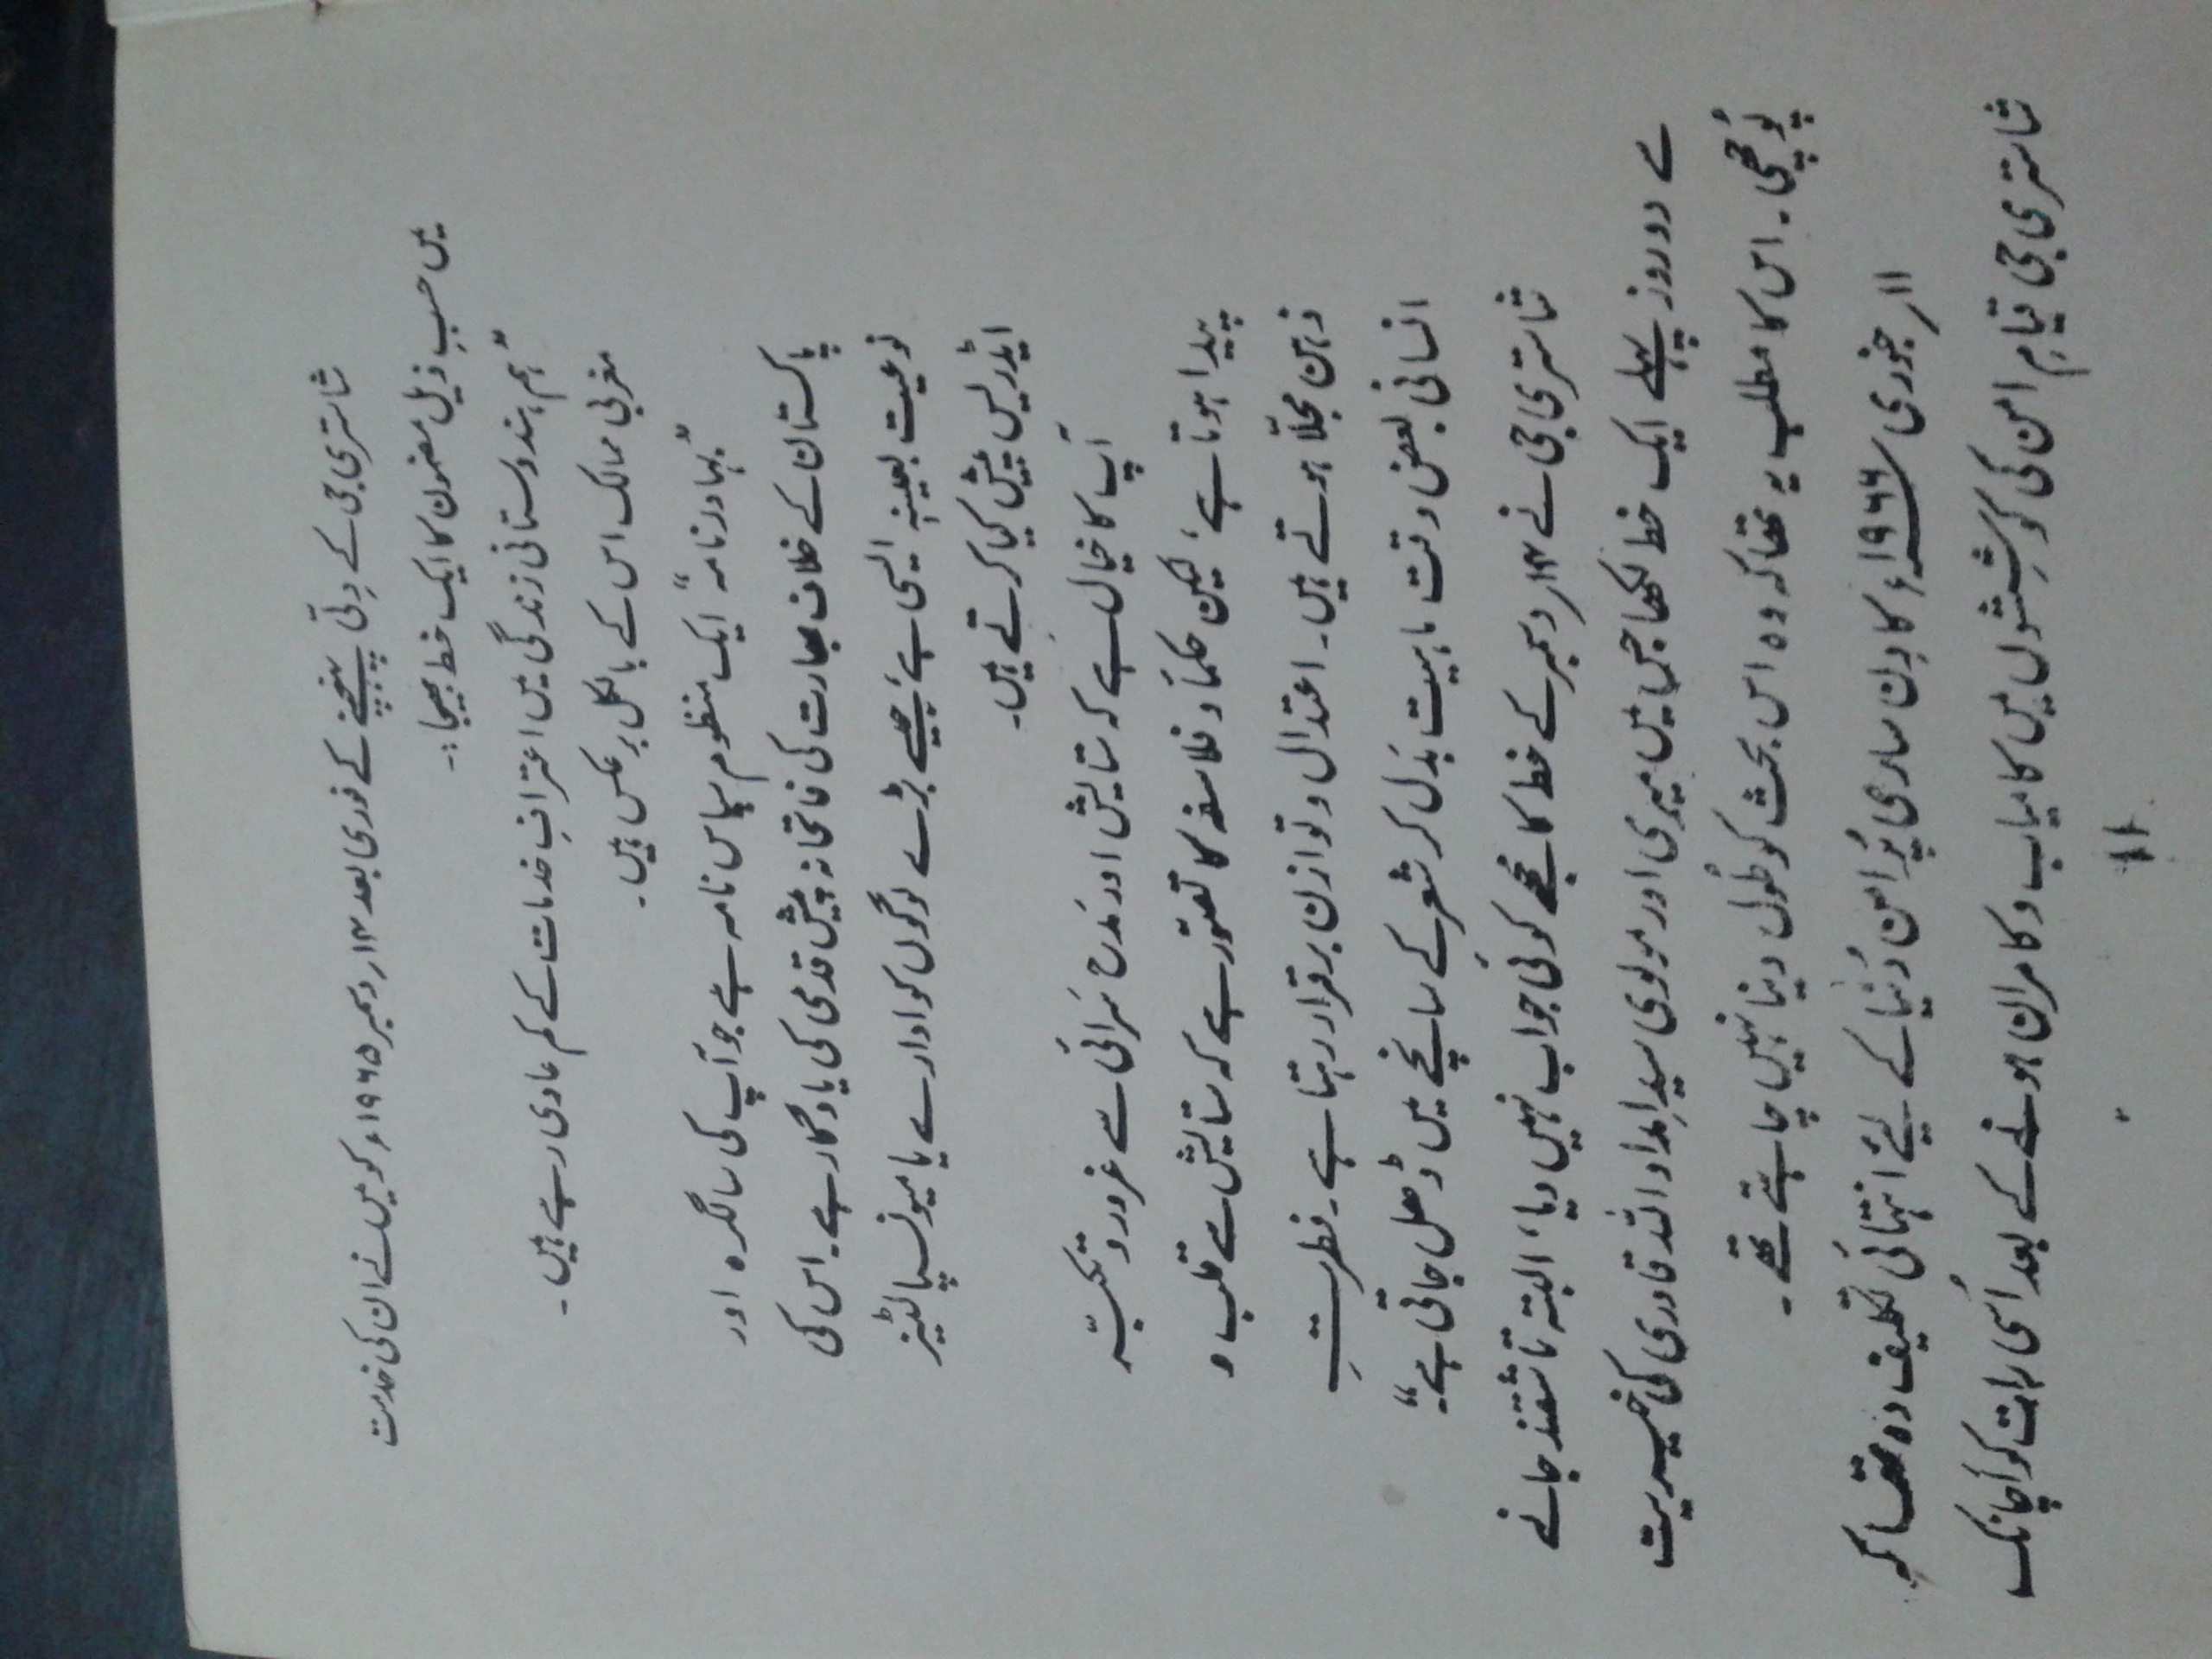 شاستری جی کے دِلّی پہنچنے کے فوری بعد ۱۳ر دسمبر ۱۹۶۵ء کو میں نے ان کی خدمت
میں حسبِ ذیل مضمون کا ایک خط بھیجا:۔
”ہم ہندوستانی زندگی میں اعترافِ خدمات کے کم عادی رہے ہیں۔
مغربی ممالک اس کے بالکل برعکس ہیں۔
”بہادر نامہ“ ایک منظوم سپاس نامہ ہے جو آپ کی سالگرہ اور
پاکستان کے خلاف بھارت کی فاتحانہ پیش قدمی کی یادگار ہے۔ اس کی
نوعیت بعینہٖ ایسی ہے، جیسے بڑے لوگوں کو ادارے یا میونسپالٹیز
ایڈریس پیش کیا کرتے ہیں۔
آپ کا خیال ہے کہ ستایش اور مَدح سَرائی سے غرور و تکبّر
پیدا ہوتا ہے، لیکن حکما و فلاسفہ کا تصّور ہے کہ ستایش سے قلب و
ذہن مجلّا ہوتے ہیں۔ اعتدال و توازن برقرار رہتا ہے۔ فطرتِ
انسانی بعض وقت ماہیت بَدل کر شعر کے سانچے میں ڈھل جاتی ہے۔“
شاستری جی نے ۱۳ر دسمبر کے خط کا مجھے کوئی جواب نہیں دیا، البتہ تاشقند جانے
سے دو روز پہلے ایک خط لکھا جس میں میری اور مولوی سید اِمداد اللہ قادری کی خیریت
پُوچھی۔ اس کا مطلب یہ تھا کہ وہ اس بحث کو طُول دینا نہیں چاہتے تھے۔
۱۱ر جنوری ۱۹۶۶ء کا دِن ساری پُرامن دُنیا کے لیے انتہائی تکلیف دہ تھا کہ
شاستری جی قیامِ امن کی کوشِشوں میں کامیاب و کامران ہونے کے بعد اُسی رات کو اَچانک
۱۱